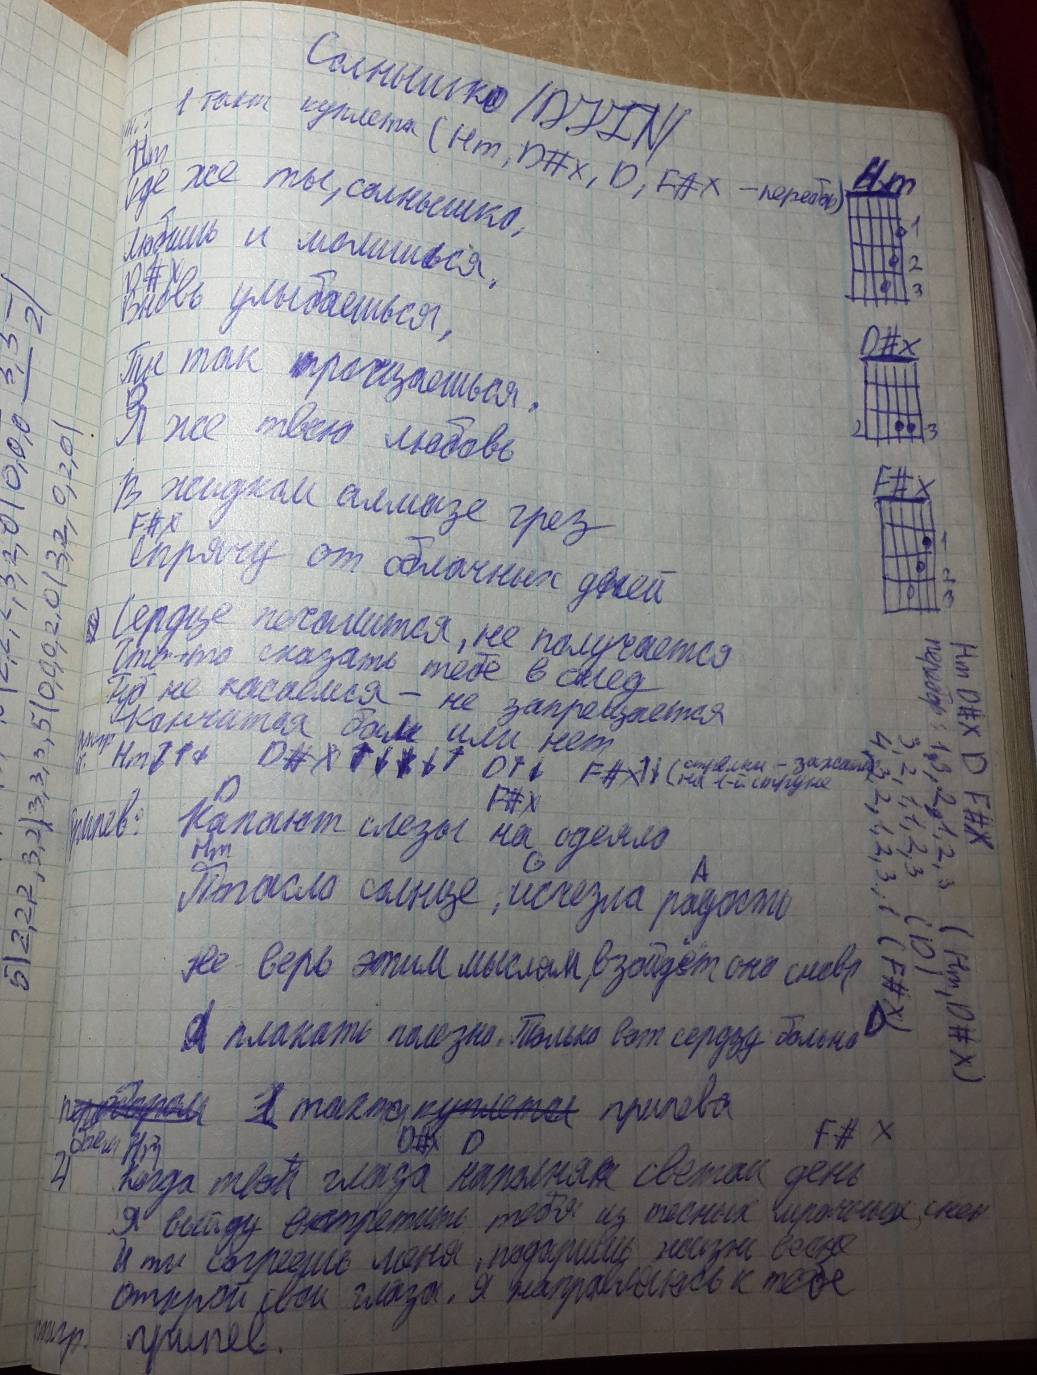 Солнышко /DJIN/
1 такт куплета (Hm, D#x, D, F#x - перебор)
Hm
Где же ты, солнышко,
Любишь и молишься,
D#x
Вновь улыбаешься,
Ты так прощаешься.
D
Я же твою любовь
В жидком алмазе грез
F#x
Спрячу от облачных дней
Сердце печалится, не получается
Что-то сказать тебе в след
не касаемся - не запрещается
Кончится боль или нет
Hm↓↑↑↓ D#x↑↓↓↓↑ D↑↓ F#x↑↓ (стрелки - зажать на 1-й струне
D F#x
Припев: Капают слезы на одеяло
Hm G A
Погасло солнце, исчезла радость
Не верь этим мыслям, взойдёт оно снова
А плакать полезно. Только вот сердцу больно D
1 такта куплета припева
боем Hm D#x D F#x
2) Когда твои глаза наполняя светом день
Я выйду встретить тебя из тесных мрачных
И ты согреешь меня, подаришь жизни
Открой свои глаза. Я направляюсь к тебе
припев.
Hm
1
2
3
D#x
2 3
F#x
1
2
3
Hm D#x D F#x
перебор: 1,3,2,1,2,3 (Hm, D#x)
3,2,1,1,2,3 (D)
4,3,2,1,2,3,1 (F#x)